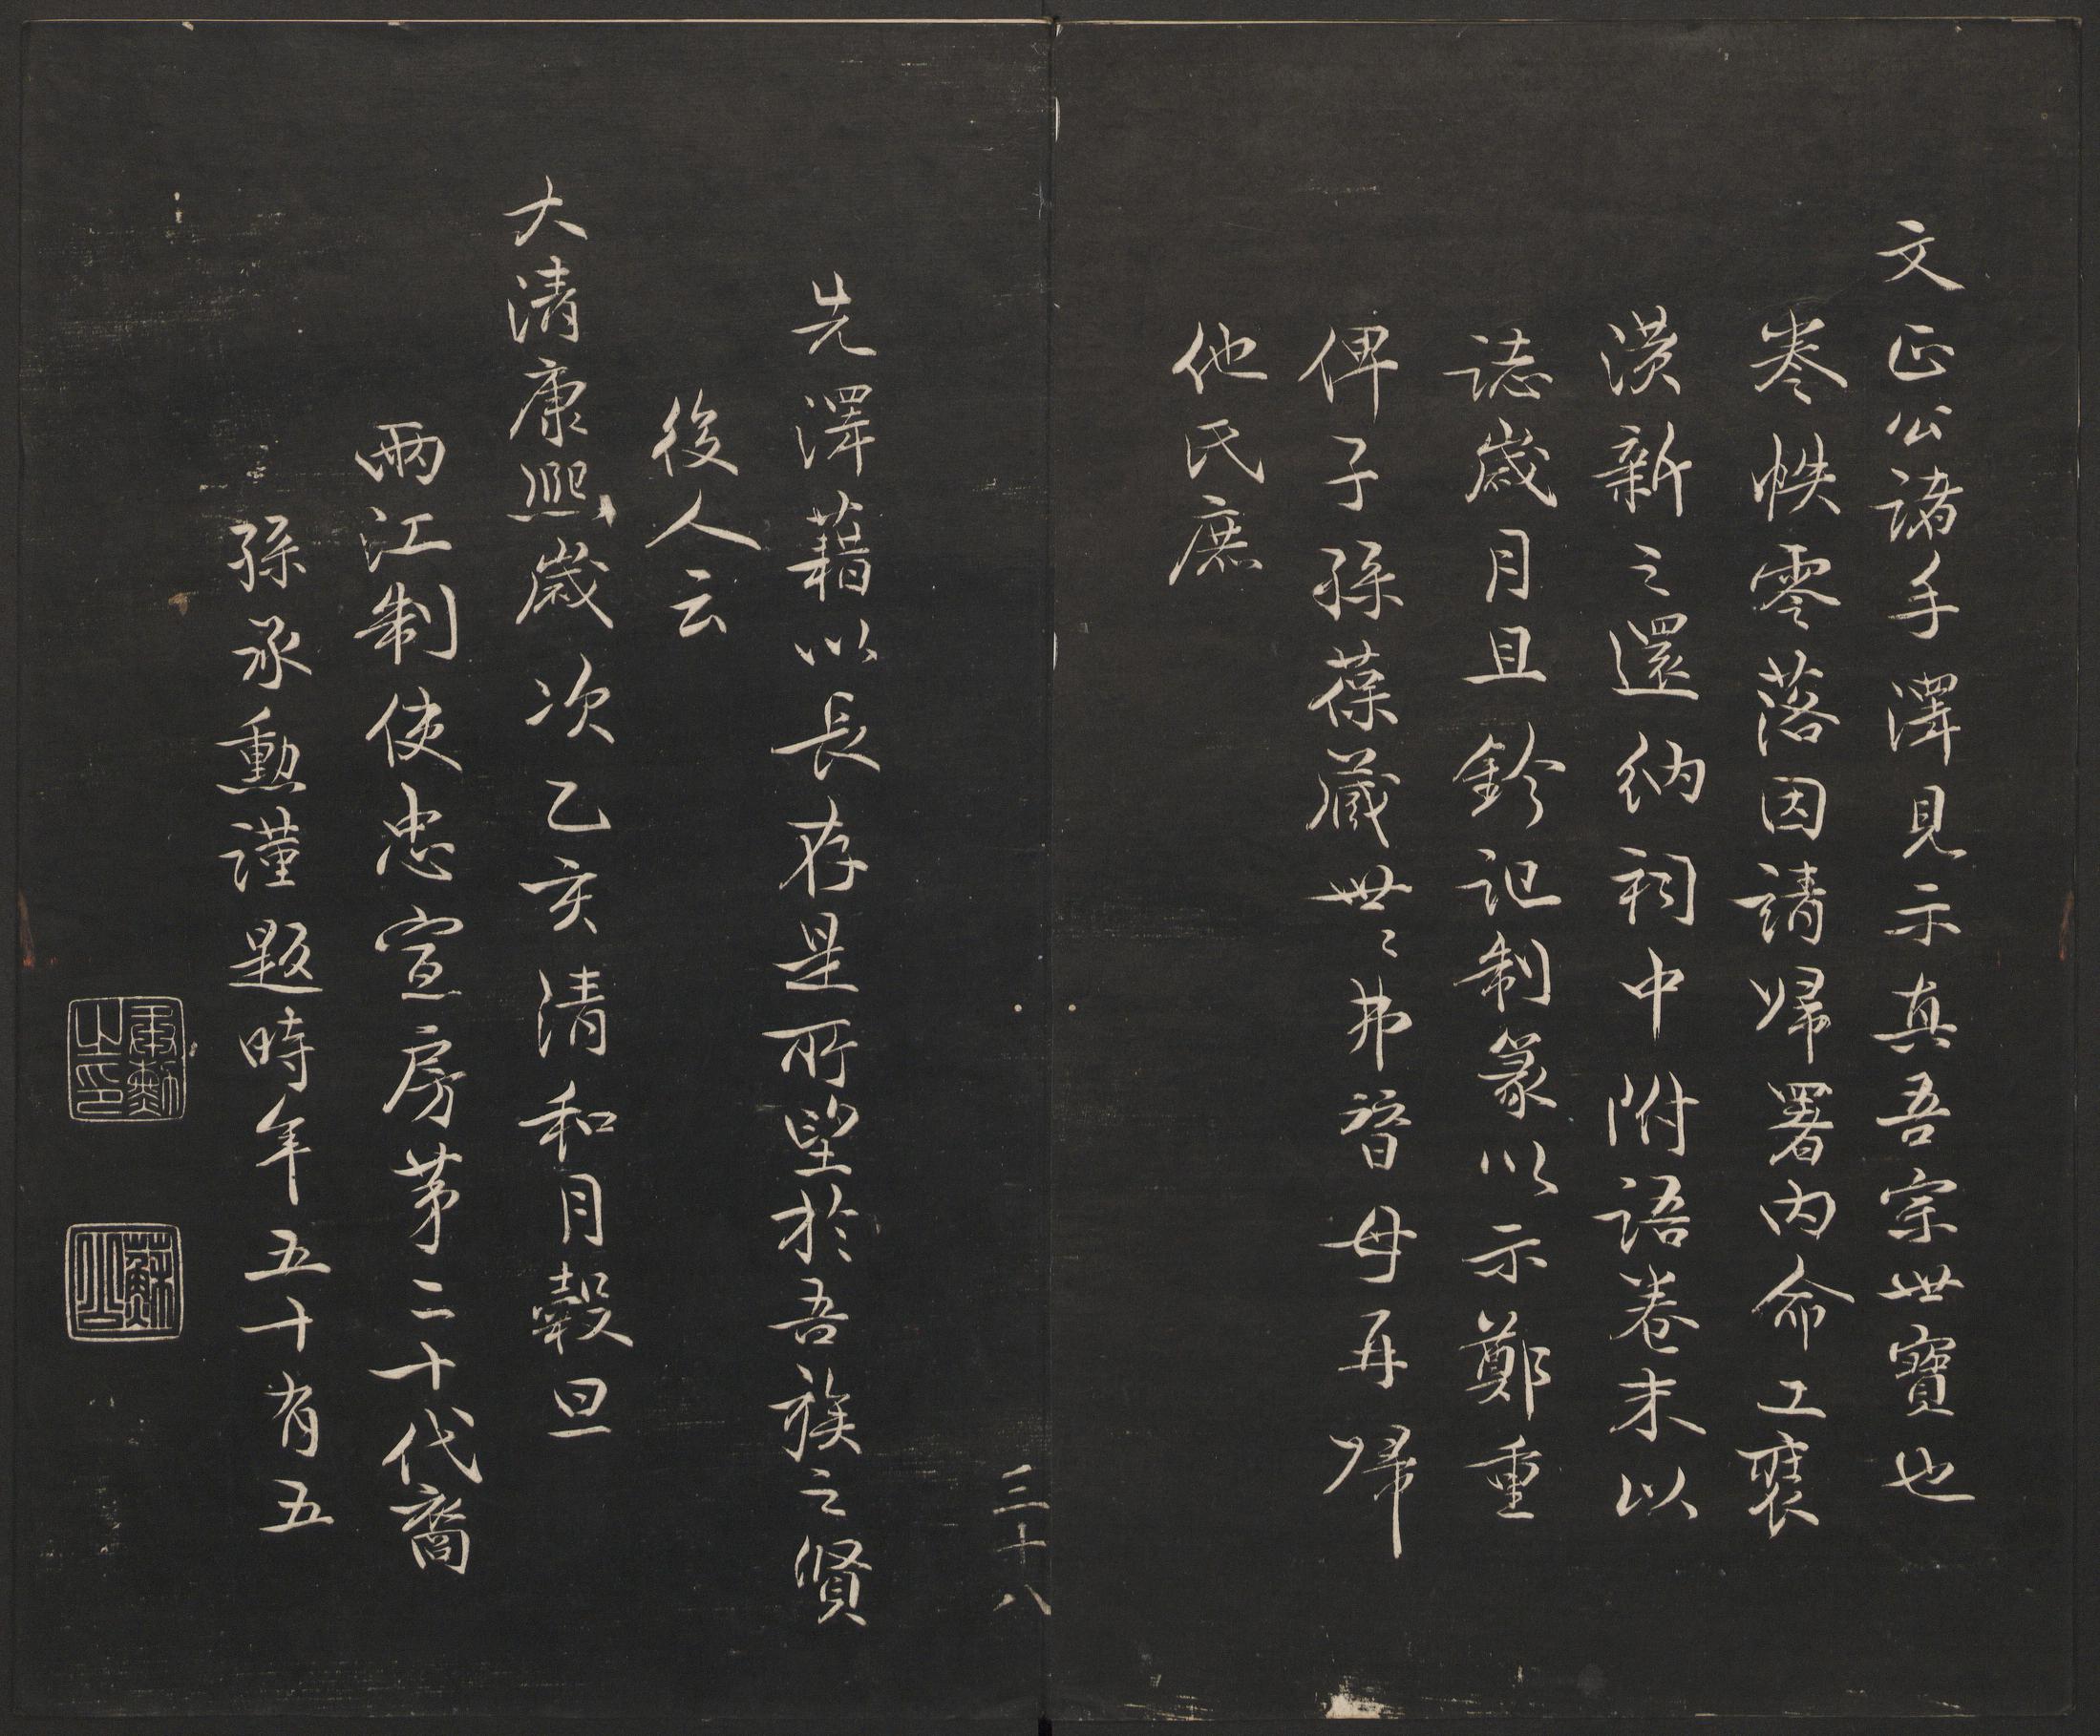 文正公諸手澤見示真吾宗世寶也
卷帙零落因請歸署内命工褎
潢新之還納祠中附語卷末以
誌歲月且鈐記制篆以示鄭重
俾子孫葆藏世〻弗替毋再歸
他氏庶
三十八
先澤藉以長存是所望於吾族之賢
後人云
大清康熙歲次乙亥清和月穀旦
兩江制使忠宣房苐二十代裔
孫承勳謹題時年五十有五
承勳之印
蘇公